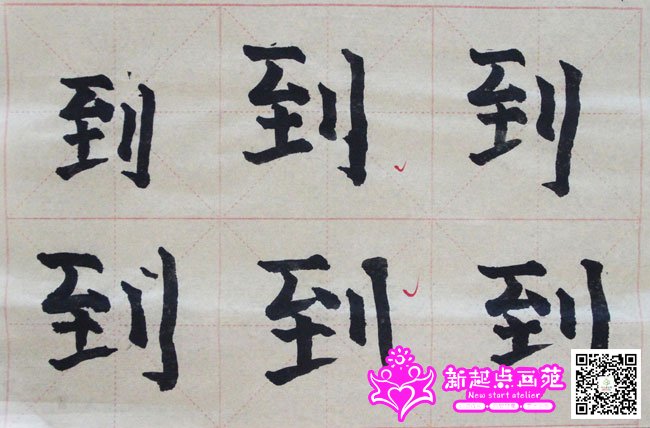 到 到 到
到 到 到
新起点画苑
New start atelier